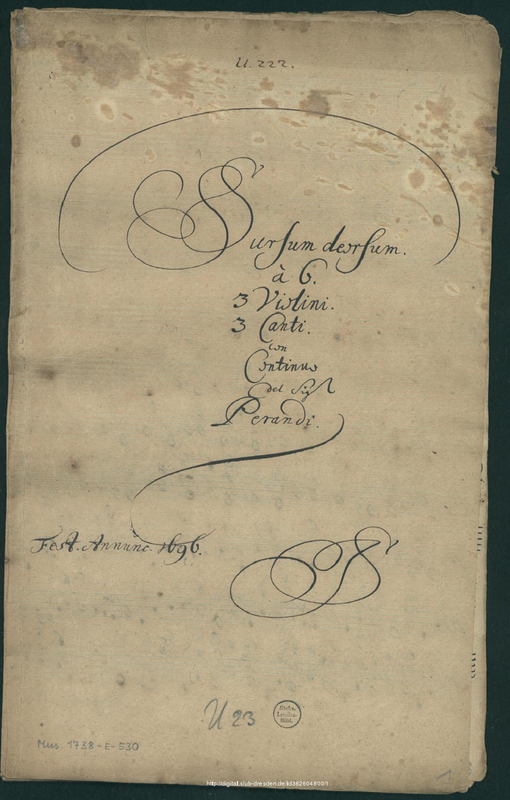 U. 222.
Sursum deorsum.
à 6.
3 Violini.
3 Canti.
con
Continuo
del Sigr
Perandi.
Fest. Annunc. 1696.
U 23
Mus. 1738-E-530
1
http://digital.slub-dresden.de/id362604800/1